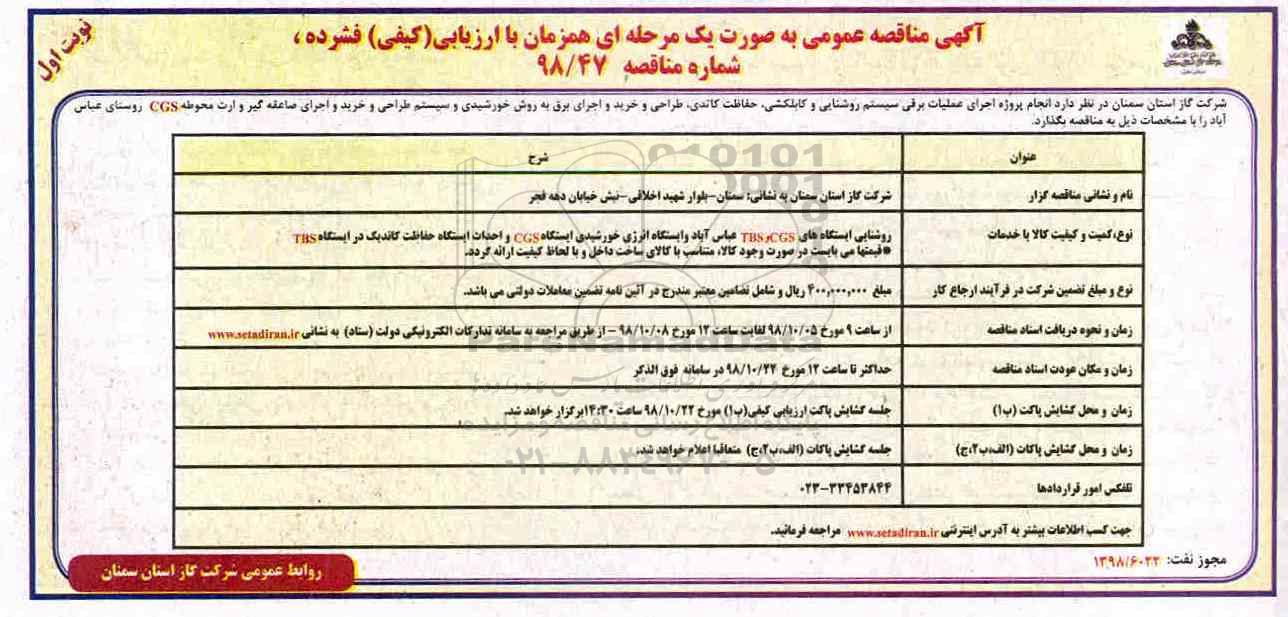 نوبت اول
آگهی مناقصه عمومی به صورت یک مرحله ای همزمان با ارزیابی(کیفی) فشرده ،
شماره مناقصه ۹۸/۴۷
شرکت گاز استان سمنان در نظر دارد انجام پروژه اجرای عملیات برقی سیستم روشنایی و کابلکشی، حفاظت کاتدی، طراحی و خرید و اجرای برق به روش خورشیدی و سیستم طراحی و خرید و اجرای صاعقه گیر و ارت محوطه CGS روستای عباس
آباد را با مشخصات ذیل به مناقصه بگذارد.
عنوان شرح
نام و نشانی مناقصه گزار شرکت گاز استان سمنان به نشانی: سمنان-بلوار شهید اخلاقی-نبش خیابان دهه فجر
نوع،کمیت و کیفیت کالا یا خدمات روشنایی ایستگاه های CGS و TBS عباس آباد وایستگاه انرژی خورشیدی ایستگاه CGS و احداث ایستگاه حفاظت کاتدیک در ایستگاه TBS
*قیمتها می بایست در صورت وجود کالا، متناسب با کالای ساخت داخل و با لحاظ کیفیت ارائه گردد.
نوع و مبلغ تضمین شرکت در فرآیند ارجاع کار مبلغ ۴۰۰,۰۰۰,۰۰۰ ریال و شامل تضامین معتبر مندرج در آئین نامه تضمین معاملات دولتی می باشد.
زمان و نحوه دریافت اسناد مناقصه از ساعت ۹ مورخ ۹۸/۱۰/۰۵ لغایت ساعت ۱۲ مورخ ۹۸/۱۰/۰۸ - از طریق مراجعه به سامانه تدارکات الکترونیکی دولت (ستاد) به نشانی www.setadiran.ir
زمان و مکان عودت اسناد مناقصه حداکثر تا ساعت ۱۲ مورخ ۹۸/۱۰/۲۲ در سامانه فوق الذکر
زمان و محل گشایش پاکت (ب۱) جلسه گشایش پاکت ارزیابی کیفی(ب۱) مورخ ۹۸/۱۰/۲۲ ساعت ۱۴:۳۰ برگزار خواهد شد.
زمان و محل گشایش پاکات (الف،ب۲،ج) جلسه گشایش پاکات (الف،ب۲،ج) متعاقبا اعلام خواهد شد.
تلفکس امور قراردادها ۰۲۳-۳۳۴۵۳۸۴۴
جهت کسب اطلاعات بیشتر به آدرس اینترنتی www.setadiran.ir مراجعه فرمائید.
مجوز نفت: ۱۳۹۸/۶۰۲۲
روابط عمومی شرکت گاز استان سمنان
ParsNamadData
پایگاه اطلاع رسانی مناقصه و مزایده
۰۲۱-۸۸۳۴۹۶۷۰-۵